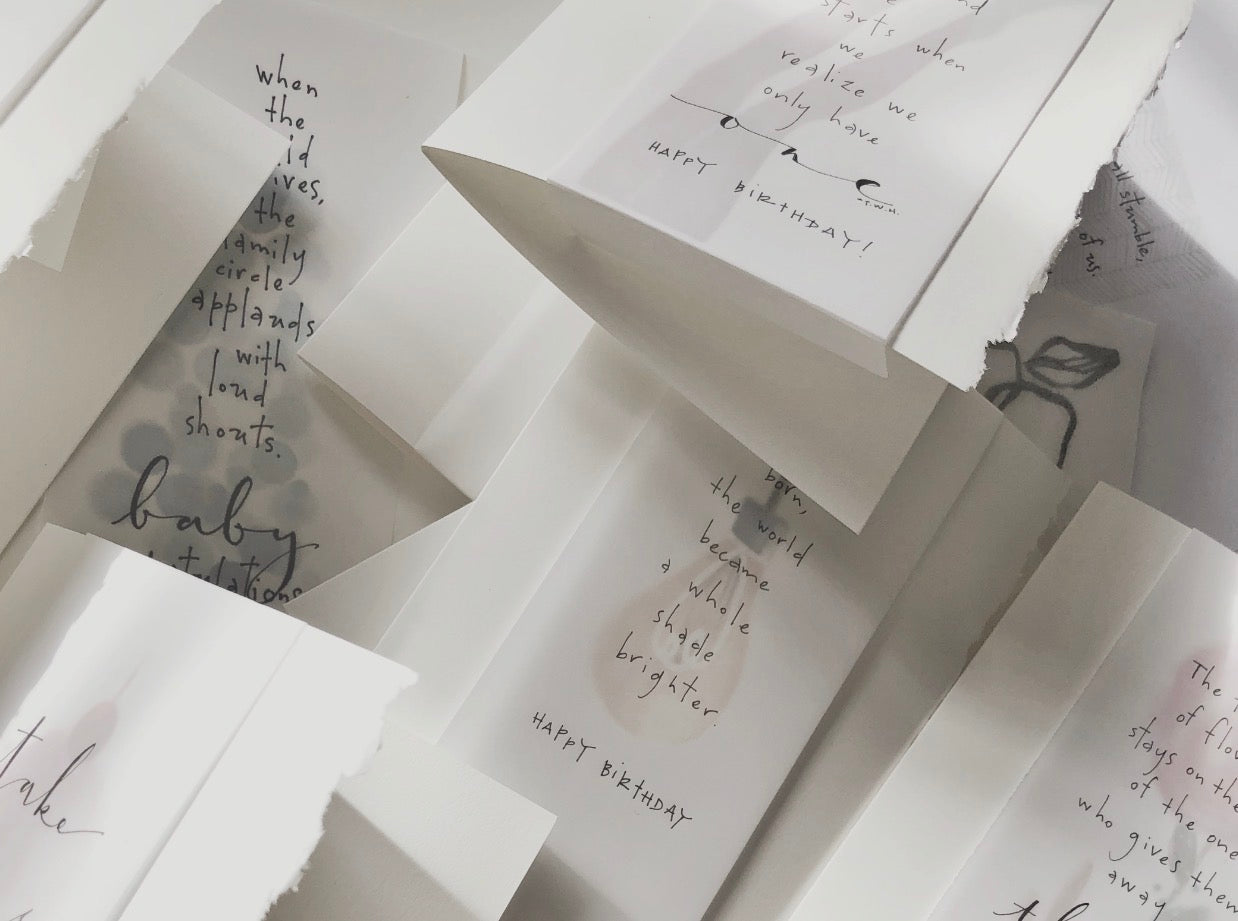 when
the
family
circle
applauds
with
loud
shouts.
baby
starts when
we
realize we
only have
one
-T.W.H.
HAPPY BIRTHDAY!
all stumble,
of us.
born,
the world
became
a whole
shade
brighter.
HAPPY BIRTHDAY
take
The
of
stays on the
of the one
who gives them
away